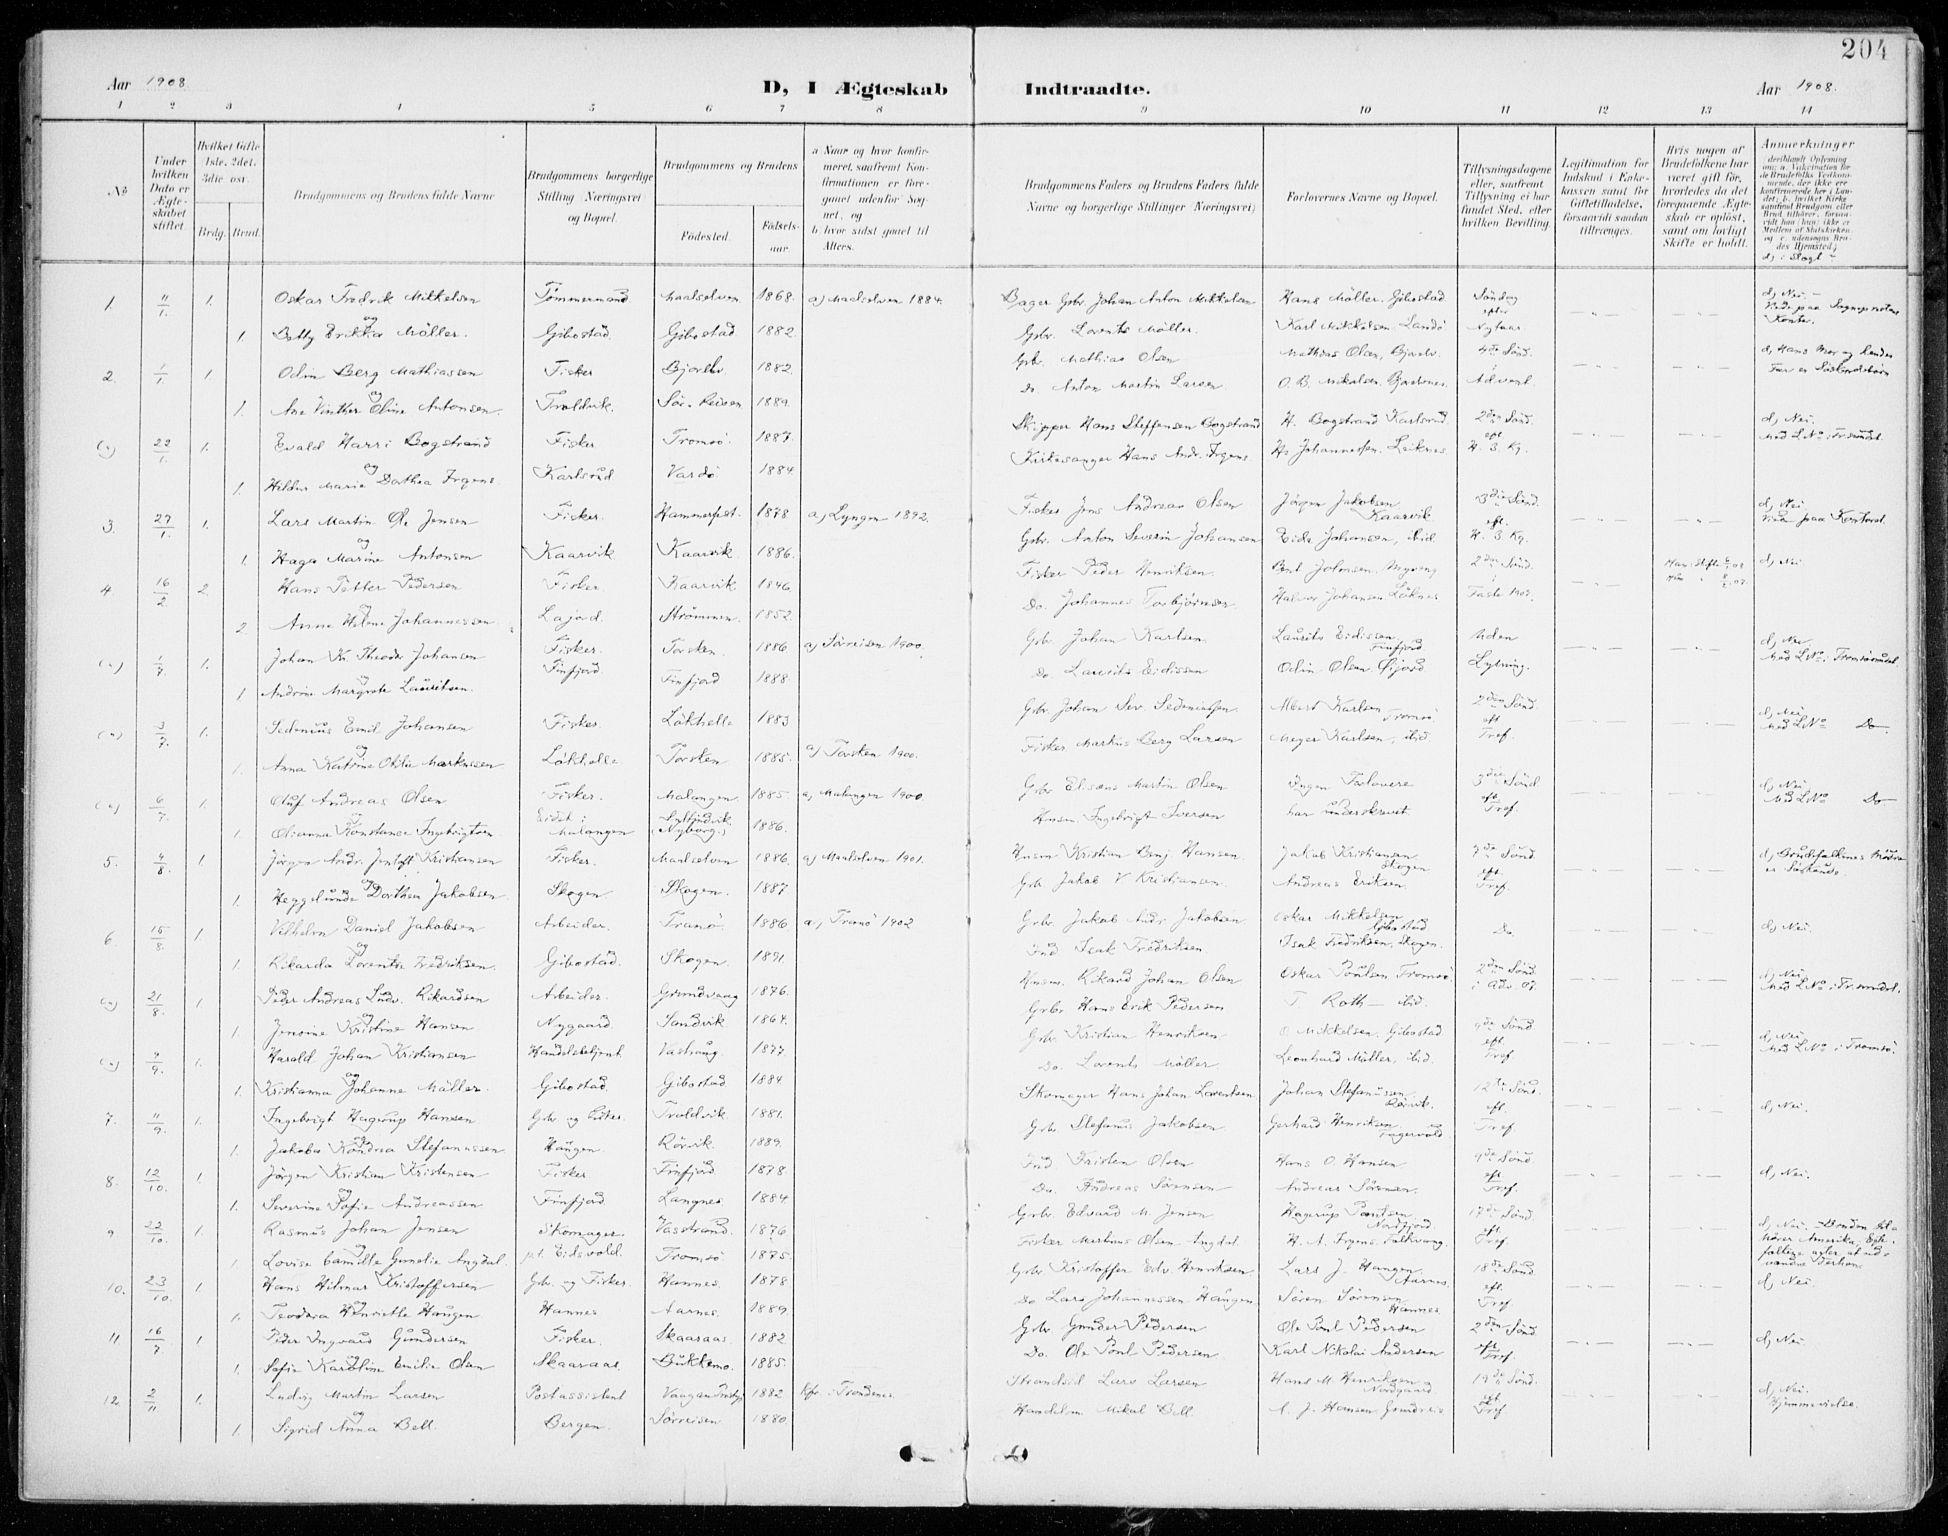 204
Aar 1908 D, I Ægteskab Indtraadte. Aar 1908.
1 2 3 4 5 6 7 8 9 10 11 12 13 14
No
Under hvilken Dato er Ægteskabet stiftet
Hvilket Gifte 1ste, 2det, 3die osv.
Brdg. Brud.
Brudgommens og Brudens fulde Navne
Brudgommens borgerlige Stilling Næringsvei og Bopæl
Brudgommens og Brudens
Fødested. Fødselsaar.
a Naar og hvor konfirmeret, saafremt Konfirmationen er foregaaet udenfor Sognet, og
b. hvor sidst gaaet til Alters.
Brudgommens Faders og Brudens Faders fulde Navne og borgerlige Stillinger Næringsvei)
Forlovernes Navne og Bopæl.
Tillysningsdagene eller, saafremt Tillysning ei har fundet Sted, efter hvilken Bevilling.
Legitimation for Indskud i Enkekassen samt for Giftetilladelse, forsaavidt saadan tiltrænges.
Hvis nogen af Brudefolkene har været gift før, hvorledes da det foregaaende Ægteskab er opløst, samt om lovligt Skifte er holdt.
Anmærkninger
d) i Slægt?
1. 11/1. 1. Oskar Fredrik Mikkelsen Tømmermand Maalselven 1868. a) Maalselven 1884. Bager Gbr. Johan Anton Mikkelsen Hans Møller. Gibostad Søndag efter d) Nei. –
og 1. Betty Erikka Møller. Gibostad Gibostad 1882. Gbr. Lorents Møller. Karl Mikkelsen Nytaar
2. 1/1. 1. Odin Berg Mathiassen Fisker 1882. Gbr. Mathias Olsen Mathias Olsen, 4de Sønd. d) Hans Mor og hendes Far er Søskendebørn
og 1. Ane Vinther Oline Antonsen. Troldvik. Sør-Reisen 1889. Do Anton Martin Larsen O. B. Mikalsen Advent
22/1. 1. Evald Harri Bogstrand Fisker Tromsø. 1887. Skipper Hans Steffensen Bogstrand H. Bogstrand Karlsrud 2den Sønd. eft d) Nei.
og 1. Hilda Marie Dorthea Irgens Karlsrud Vardø 1884. Kirkesanger Hans Andr. Irgens Hs Johannessen. Leiknes H. 3 Kg.
3. 27/1. 1. Lars Martin Ole Jensen Fisker. Hammerfest. 1878 a) Lyngen 1892. Fisker Jens Andreas Olsen Jørgen Jakobsen Kaarvik 3die Sønd. eft. d) Nei
og 1. Haga Marine Antonsen Kaarvik Kaarvik 1886. Gbr. Anton Severin Johansen Johansen, ibid. H. 3 Kg.
4. 16/2. 2. Hans Petter Pedersen Fisker. Kaarvik 1846. Fisker Peder Henriksen. Bent Johnsen. 2den Sønd. d) Nei
og 2 Anne Helene Johannessen Lajord. Strømmen. 1852. Do. Johannes Torbjørnsen Halvor Johansen Faste 1908.
1/7. 1. Johan Kr. Theodor Johansen Fisker. Torsken. 1886 a) Sørreisen 1900. Gbr. Johan Karlsen. Laurits Eidissen Finfjord Uden d) Nei
og 1 Andrine Margrete Lauritsen. Finfjord Finfjord 1888. Do. Laurits Eidissen Odin Olsen Øijord Lysning.
3/7. 1. Sedenius Emil Johansen Fisker. Løkhelle 1883 Gbr. Johan Sev. Albert Karlsen Tromsø 2den Sønd. eft d) Nei
og 1. Anna Katrine Otilie Markussen Løkhelle Torsken 1885. a) Torsken 1900. Fisker Markus Berg Larsen Meyer Karlsen, ibid Tref. Med LNo Do
6/7. 1. Oluf Andreas Olsen Fisker. Malangen. 1885. a) Malangen 1900. Gbr Elisæus Martin Olsen Ingen Forlovere 3die Sønd eft d) Nei.
og 1. Olianna Konstance Ingebrigtsen Eidet i Malangen (Nyborg.) 1886. Husm. Ingebrigt Iversen har underskrevet. Tref. Med LNo Do
5. 4/8. 1. Jørgen Andr. Jentoft Kristiansen Fisker. Maalselven 1886. a) Maalselven 1901. Husm Kristian Benj. Hansen. Jakob Kristiansen Skogen 7de Sønd. eft d) Brudefolkenes Mødre er Søskende.
og 1. Heggelunde Dorthea Jakobsen Skogen Skogen. 1887 Gbr Jakob V Kristiansen. Andreas Eriksen. Tref.
6. 15/8. 1. Vilhelm Daniel Jakobsen Arbeider. Tranø. 1886 a) Tranø 1902 Gbr. Jakob Andr. Jakobsen Oskar Mikkelsen Gibostad Do d) Nei.
og 1. Rikarda Lorentse Fredriksen. Gibostad. Skogen. 1891. Ind. Isak Fredriksen. Isak Fredriksen, Skogen.
21/8. 1. Peder Andreas Ludv. Rikardsen Arbeider. Grundvaag 1876. Husm. Rikard Johan Olsen Oskar Poulsen Tromsø 2den Sønd. d) Nei
og 1. Jensine Kristine Hansen Nygaard Sandvik 1864. Gbr. Hans Erik Pedersen T. Roth – ibid. i Adv. 07.
4/9. 1. Harald Johan Kristiansen Handelsbetjent 1877. Gbr. Kristian Henriksen O Mikkelsen. Gibostad 9de Sønd eft. d) Nei
og 1. Kristianna Johanne Møller. Gibostad Gibostad 1884. Do. Lorents Møller Leonhard Møller, ibid. Tref
7. 11/9. 1. Ingebrigt Hagerup Hansen Gbr og Fisker. Troldvik 1881. Skomager Hans Johan Lorentsen Johan Stefanussen Rørvik. 12te Sønd. eft. d) Nei.
og 1. Jakoba Kondrea Stefanussen Haugen. Rørvik. 1889. Gbr Stefanus Jakobsen Gerhard Henriksen Fagervold Tref.
8. 12/10. 1. Jørgen Kristian Kristensen Fisker Finfjord 1878. Ind. Kristen Olsen Hans O. Hansen 9de Sønd. eft d) Nei.
og 1. Severine Sofie Andreassen Finfjord Langnes 1884 Do. Andreas Sørensen Andreas Sørensen. Tref.
9 22/10. 1. Rasmus Johan Jensen Skomager. Vasstrand. 1876 Gbr. Edvard M. Jensen Hagerup Paulsen Nordfjord. 17de Sønd eft d) Nei. – Bruden
og 1. Lovise Camilla Gunelie Angdal. pt. Eidsvold. Tromsø 1875. Fisker Martinus Olsen Angdal H. A. Irgens. Tref.
10. 23/10. 1. Hans Hilmar Kristoffersen Gbr. og Fisker. Hannes. 1878 Gbr Kristoffer Edv. Henriksen. Lars J. Haugen Aarnes. 18de Sønd eft. d) Nei.
1. Teodora Henriette Haugen Hannes Aarnes. 1889 Do Lars Johannessen Haugen Søren Sørensen Hannes Tref.
11 16/7 1. Peder Ingvard Gundersen Fisker. Skaaraas. 1882 Gbr Gunder Pedersen Ole Poul Pedersen 2den Sønd eft d) Nei.
og 1. Sofie Karoline Emilie Olsen Skaaraas Bukkemo. 1885. Do. Ole Poul Pedersen Karl Nikolai Andersen Tref.
12. 2/11 1. Ludvig Martin Larsen Postassistent 1882 Kfr. i Trondenes. Strandsid Lars Larsen Hans M. Henriksen Nordgaard 19de Sønd. eft d) Nei.
og 1. Sigrid Anna Bell. Bergen. Sørreisen 1880 Handelsm. Mikal Bell. A. J. Hansen Tref. Hjemmevielse.